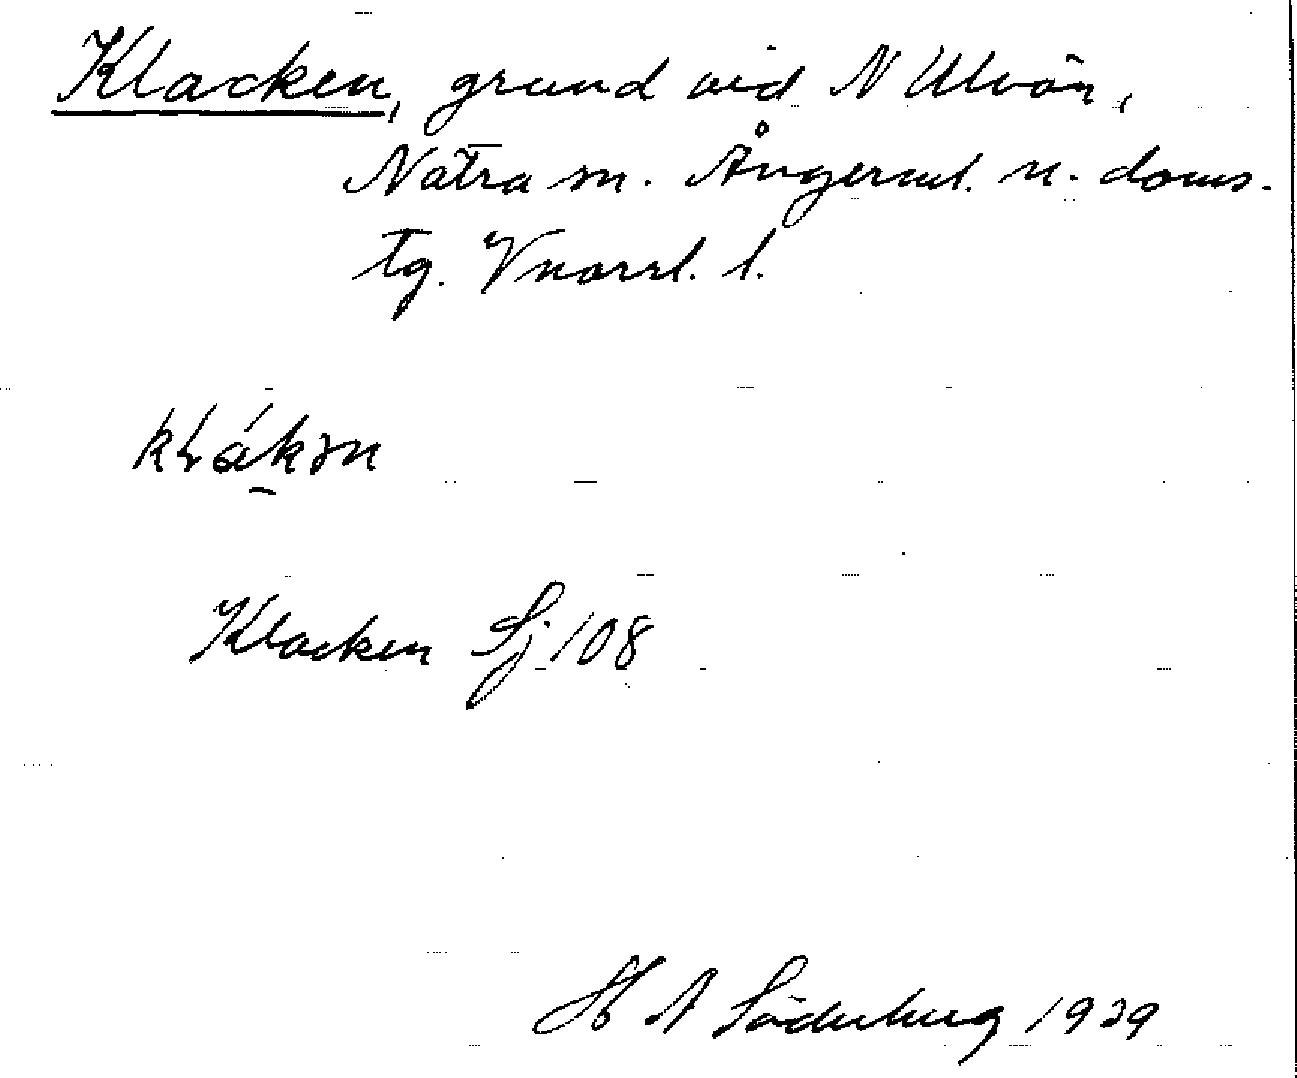 Klacken, grund vid N Ulvön,
Nätra sn. Ångerml. n. doms.
tg. Vnorrl. l.
Klacken Sj 108
H A Söderberg 1929